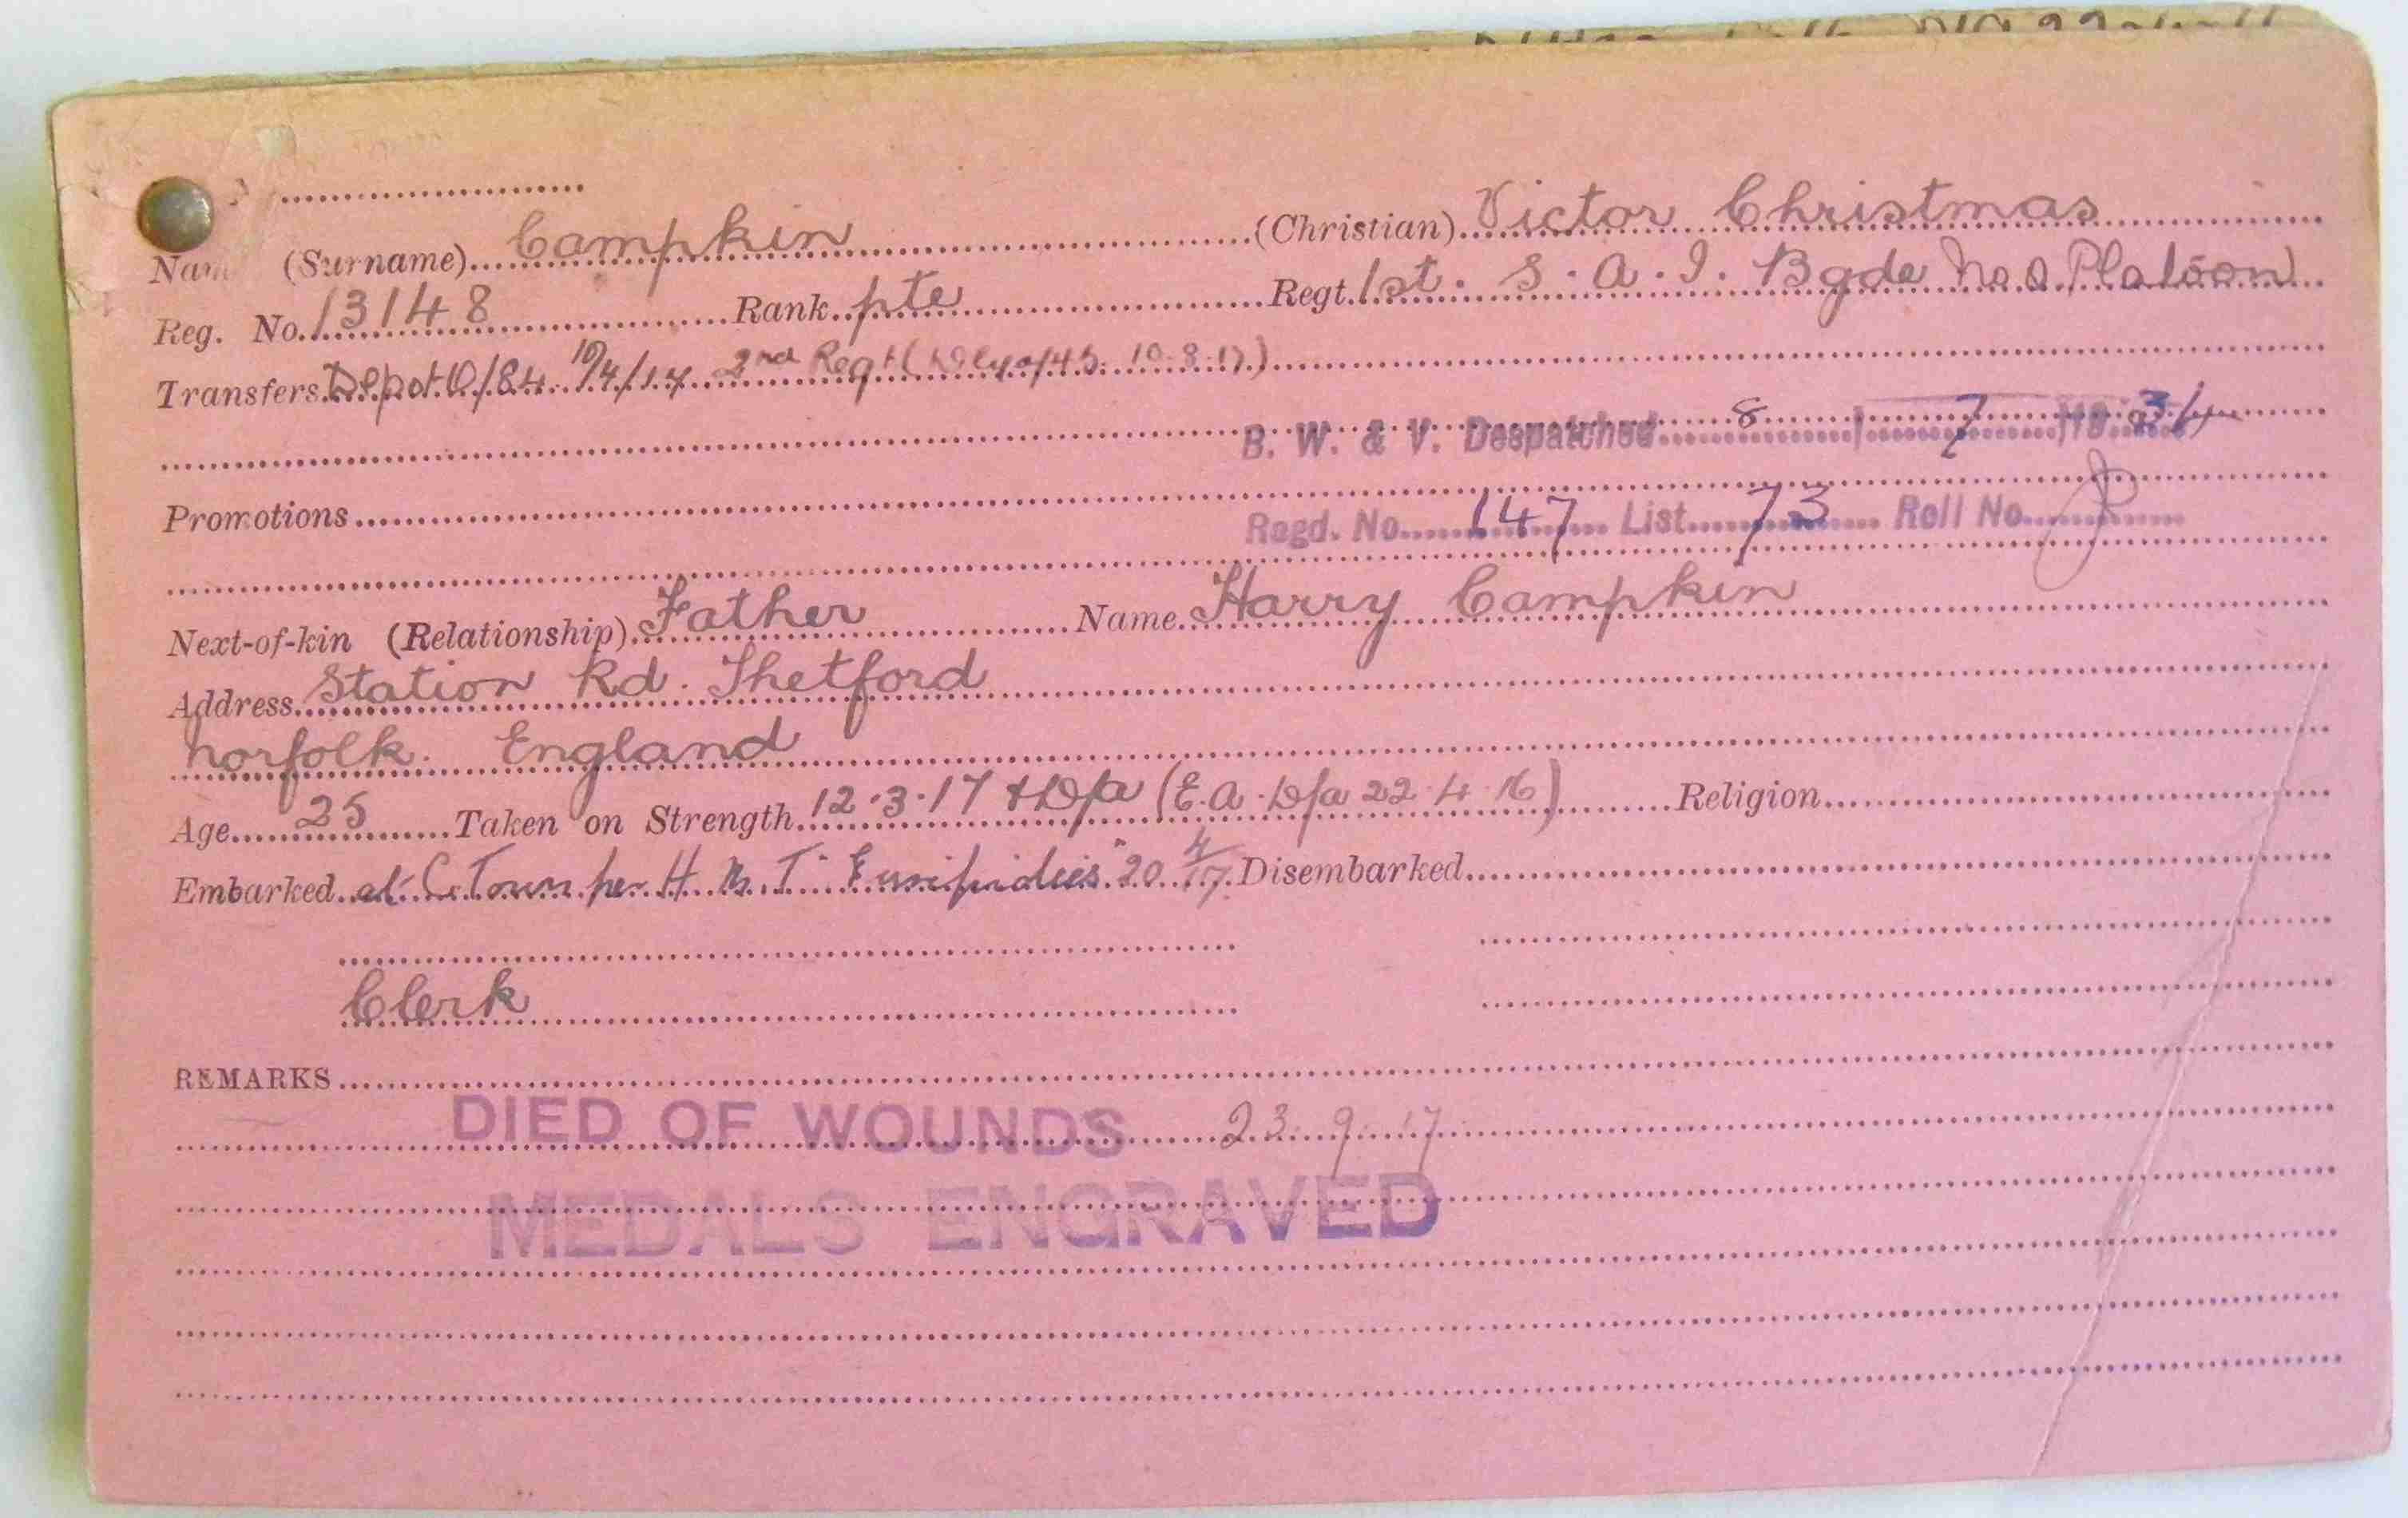 Nam (Surname) Campkin (Christian) Victor Christmas
Reg. No. 13148 Rank pte Regt. 1st. S. A. I. Bgde No. Platoon
Transfers Depot O/84 10/4/17 2nd Regt ( 10.8.17)
B. W. & V. Despatched 8 / 7 /19 34
Promotions
Regd. No. 147 List 73 Roll No.
Next-of-kin (Relationship) Father Name Harry Campkin
Address Station Rd. Thetford
Norfolk. England
Age 25 Taken on Strength 12.3.17 (E.A. D/a 22.4.16) Religion
Embarked at C. Town per H. M. T. "Euripidies" 20 4/17 Disembarked
Clerk
REMARKS
DIED OF WOUNDS 23.9.17
MEDALS ENGRAVED